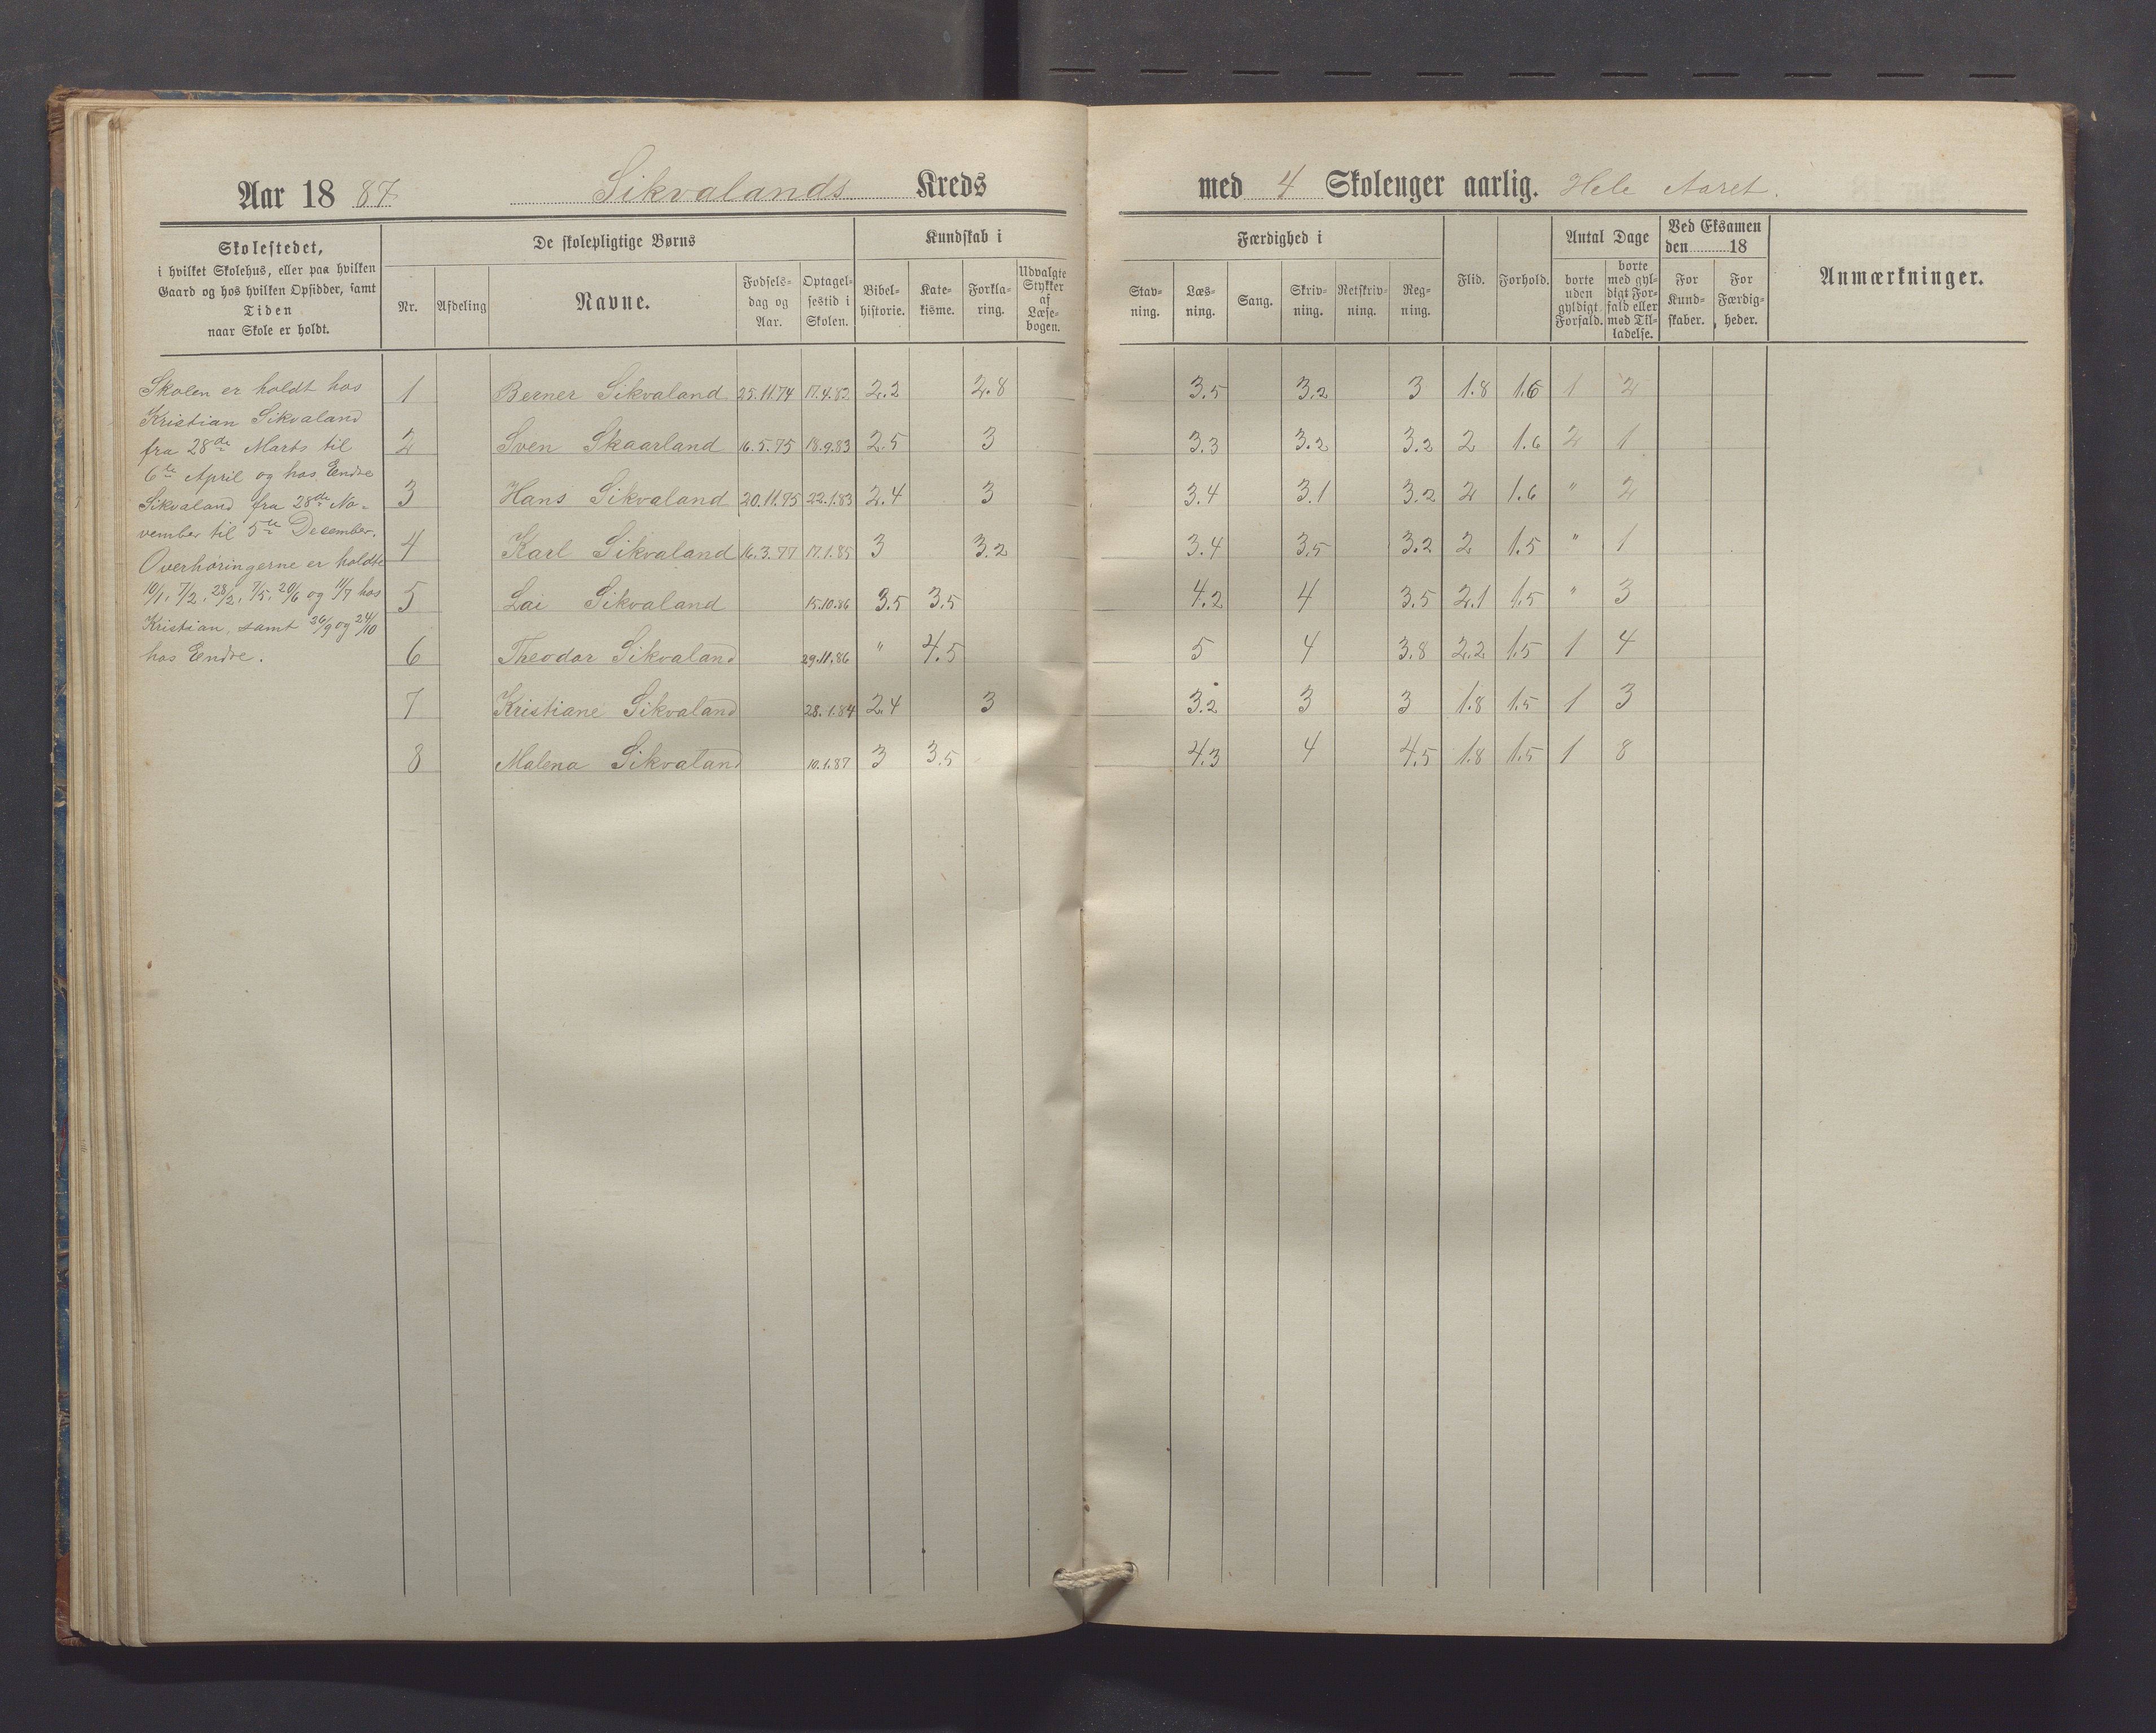 Aar 18 87. Sikvalands Kreds med 4 Skoleuger aarlig. Hele Aaret.
Skolestedet,
i hvilket Skolehus, eller paa hvilken
Gaard og hos hvilken Opsidder, samt
Tiden
naar Skole er holdt.
De skolepligtige Børns
Nr.
Afdeling
Navne.
Fødsels-
dag og
Aar.
Optagel-
sestid i
Skolen.
Kundskab i
Bibel-
historie.
Kate-
kisme.
Forkla-
ring.
Udvalgte
Stykker
af
Læse-
bogen.
Færdighed i
Stav-
ning.
Læs-
ning.
Sang.
Skriv-
ning.
Retskriv-
ning.
Reg-
ning.
Flid.
Forhold.
Antal Dage
borte
uden
gyldigt
Forfald.
borte
med gyl-
digt For-
fald eller
med Til-
ladelse.
Ved Eksamen
den 18
For
Kund-
skaber.
For
Færdig-
heder.
Anmærkninger.
Skolen er holdt hos
Kristian Sikvaland
fra 28de Marts til
6te April og hos Endre
Sikvaland fra 28de No-
vember til 5te Desember.
Overhøringerne er holdte
10/1, 7/2, 28/2, 7/5, 20/6 og 11/7 hos
Kristian, samt 26/9 og 24/10
hos Endre.
1 Berner Sikvaland 25.11.74 17.4.82 2.2 2.8 3.5 3.2 3 1.8 1.6 1 2
2 Sven Skaarland 16.5.75 18.9.83 2.5 3 3.3 3.2 3.2 2 1.6 2 1
3 Hans Sikvaland 20.11.75 22.1.83 2.4 3 3.4 3.1 3.2 2 1.6 " 2
4 Karl Sikvaland 16.3.77 17.1.85 3 3.2 3.4 3.5 3.2 2 1.5 " 1
5 Lai Sikvaland 15.10.86 3.5 3.5 4.2 4 3.5 2.1 1.5 " 3
6 Theodor Sikvaland 29.11.86 " 4.5 5 4 3.8 2.2 1.5 1 4
7 Kristiane Sikvaland 28.1.84 2.4 3 3.2 3 3 1.8 1.5 1 3
8 Malena Sikvaland 10.1.87 3 3.5 4.3 4 4.5 1.8 1.5 1 8